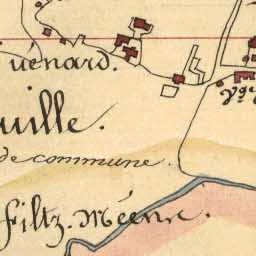 uénard.
uille.
de commune.
Filtz. Méenne.